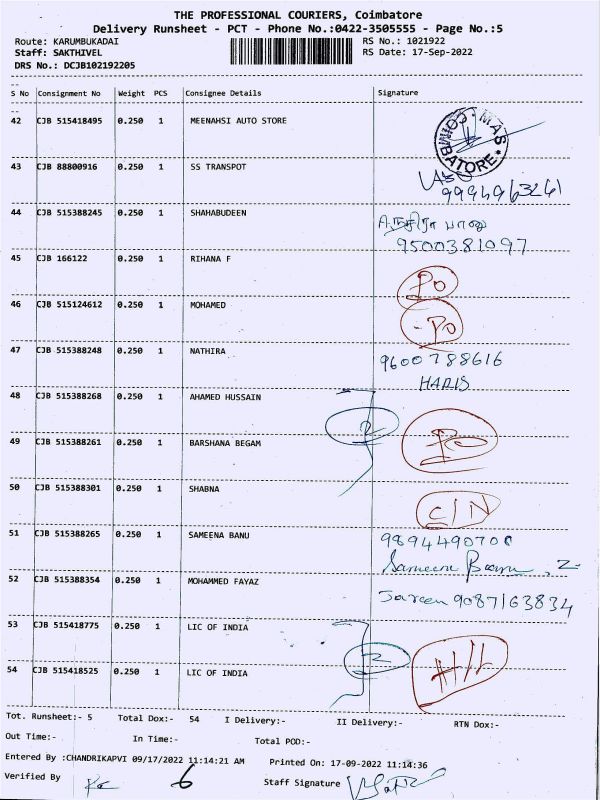 THE PROFESSIONAL COURIERS, Coimbatore
Delivery Runsheet - PCT - Phone No.:0422-3505555 - Page No.:5
Route: KARUMBUKADAI RS No.: 1021922
Staff: SAKTHIVEL RS Date: 17-Sep-2022
DRS No.: DCJB102192205
S No Consignment No Weight PCS Consignee Details Signature
42 CJB 515418495 0.250 1 MEENAHSI AUTO STORE
43 CJB 88800916 0.250 1 SS TRANSPOT
9994963261
44 CJB 515388245 0.250 1 SHAHABUDEEN
9500381097
45 CJB 166122 0.250 1 RIHANA F
PO
46 CJB 515124612 0.250 1 MOHAMED
-PO
47 CJB 515388248 0.250 1 NATHIRA 9600788616
HARIS
48 CJB 515388268 0.250 1 AHAMED HUSSAIN
2
49 CJB 515388261 0.250 1 BARSHANA BEGAM
50 CJB 515388301 0.250 1 SHABNA
C/N
51 CJB 515388265 0.250 1 SAMEENA BANU 989449070
Sameena Banu, 2
52 CJB 515388354 0.250 1 MOHAMMED FAYAZ
Jareen 9087163834
53 CJB 515418775 0.250 1 LIC OF INDIA
2
54 CJB 515418525 0.250 1 LIC OF INDIA
Tot. Runsheet:- 5 Total Dox:- 54 I Delivery:- II Delivery:- RTN Dox:-
Out Time:- In Time:- Total POD:-
Entered By :CHANDRIKAPVI 09/17/2022 11:14:21 AM Printed On: 17-09-2022 11:14:36
Verified By 6 Staff Signature